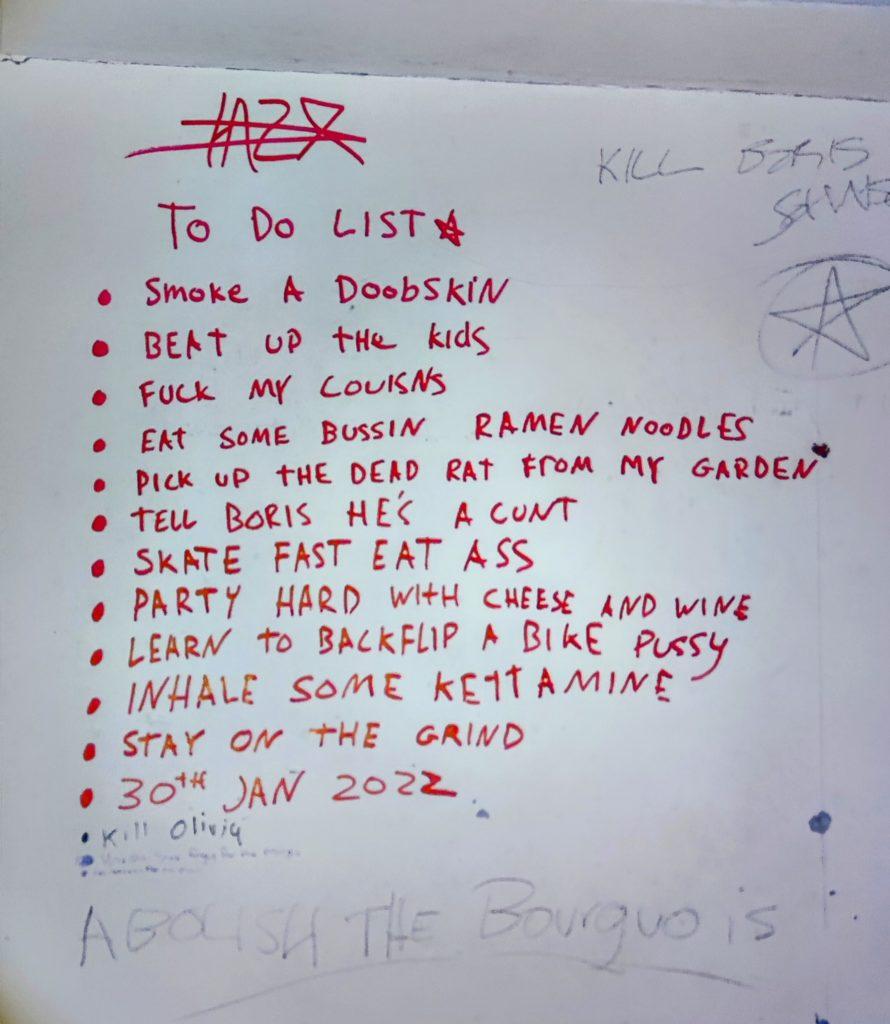 KILL BORIS
TO DO LIST
• SMOKE A DOOBSKIN
• BEAT UP THE KIDS
• FUCK MY COUISNS
• EAT SOME BUSSIN RAMEN NOODLES
• PICK UP THE DEAD RAT FROM MY GARDEN
• TELL BORIS HE'S A CUNT
• SKATE FAST EAT ASS
• PARTY HARD WITH CHEESE AND WINE
• LEARN TO BACKFLIP A BIKE PUSSY
• INHALE SOME KETTAMINE
• STAY ON THE GRIND
• 30TH JAN 2022
• Kill Olivia
ABOLISH THE Bourguois